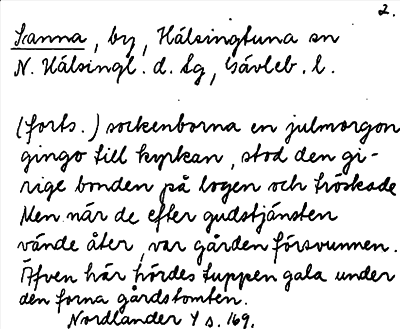 2.
Sanna, by, Hälsingtuna sn
N. Hälsingl. d. sg, Gävleb. l.
(forts.) sockenborna en julmorgon
gingo till kyrkan, stod den gi-
rige bonden på logen och tröskade
Men när de efter gudstjänsten
vände åter, var gården försvunnen.
Äfven här hördes tuppen gala under
den forna gårdstomten.
Nordlander Y s. 169.